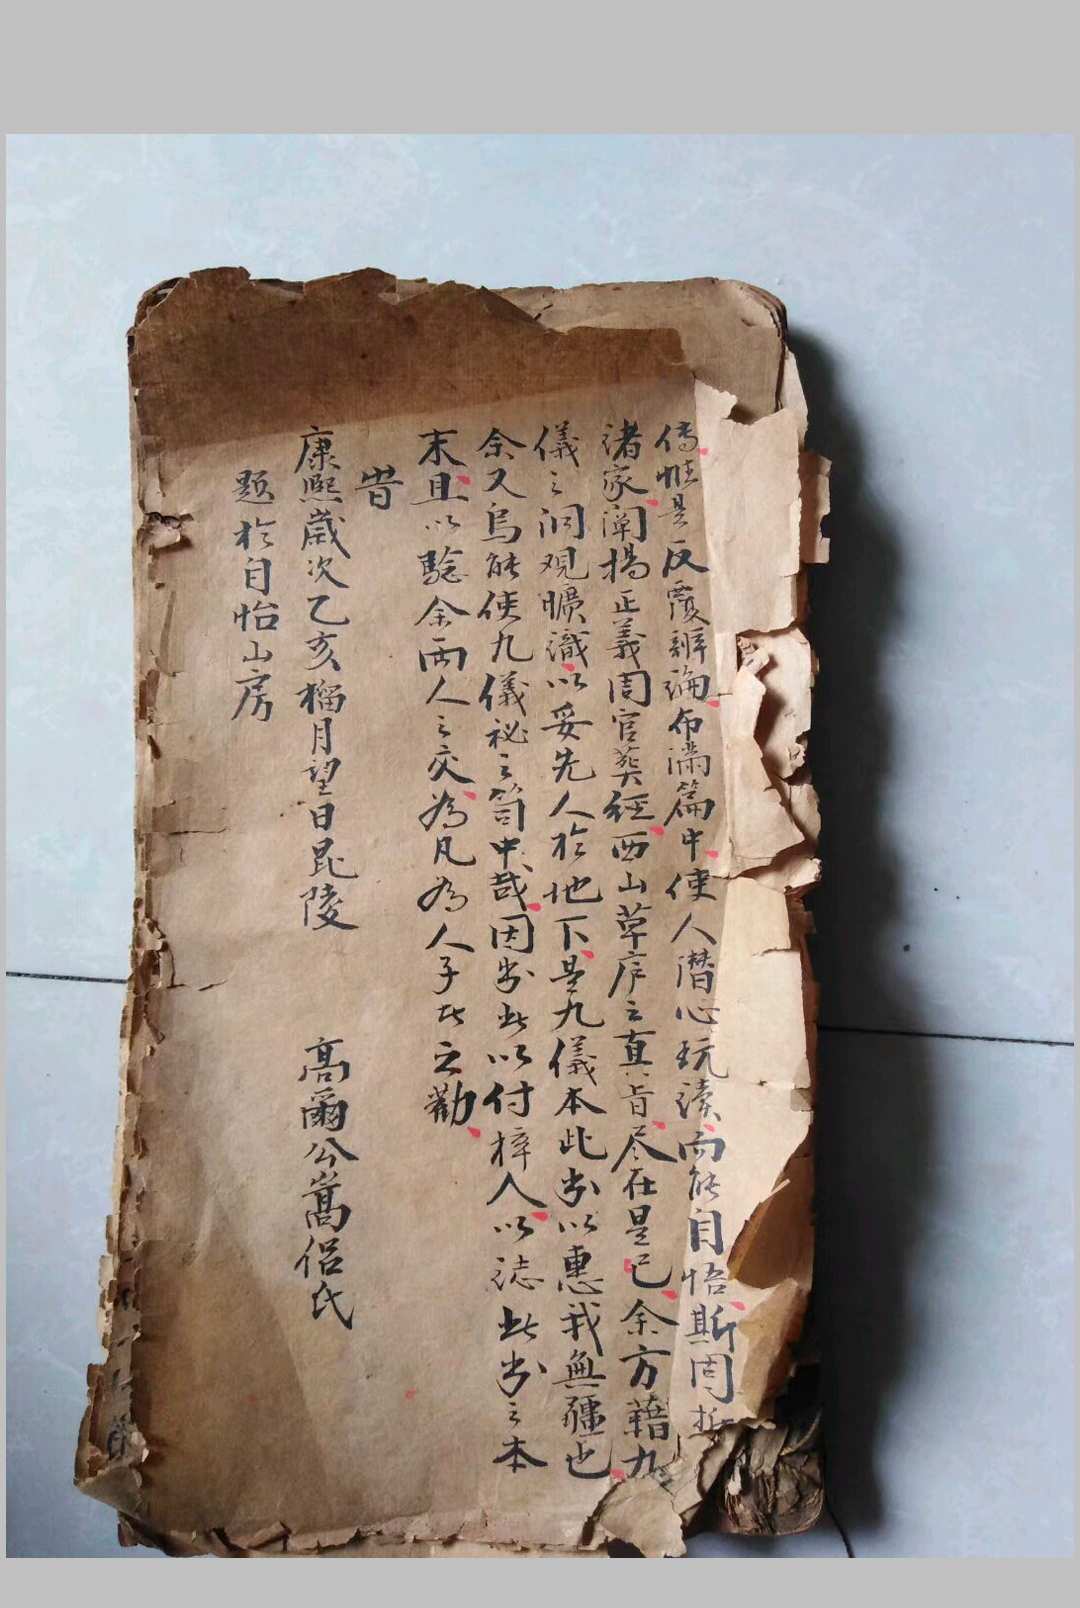 傳惟是反覆辨論布滿篇中使人潛心玩讀而能自悟斯固
諸家闡揚正義周官葬經西山草序之真旨尽在是已余方藉九
儀之洞观曠識以妥先人於地下是九儀本此书以惠我無疆也
余又烏能使九儀祕之笥中哉因书此以付梓人以誌此书之本
末且以驗余両人之交為凡為人子者之勸
旹
康熙歲次乙亥榴月望日毘陵 高爾公嵩侣氏
题於自怡山房